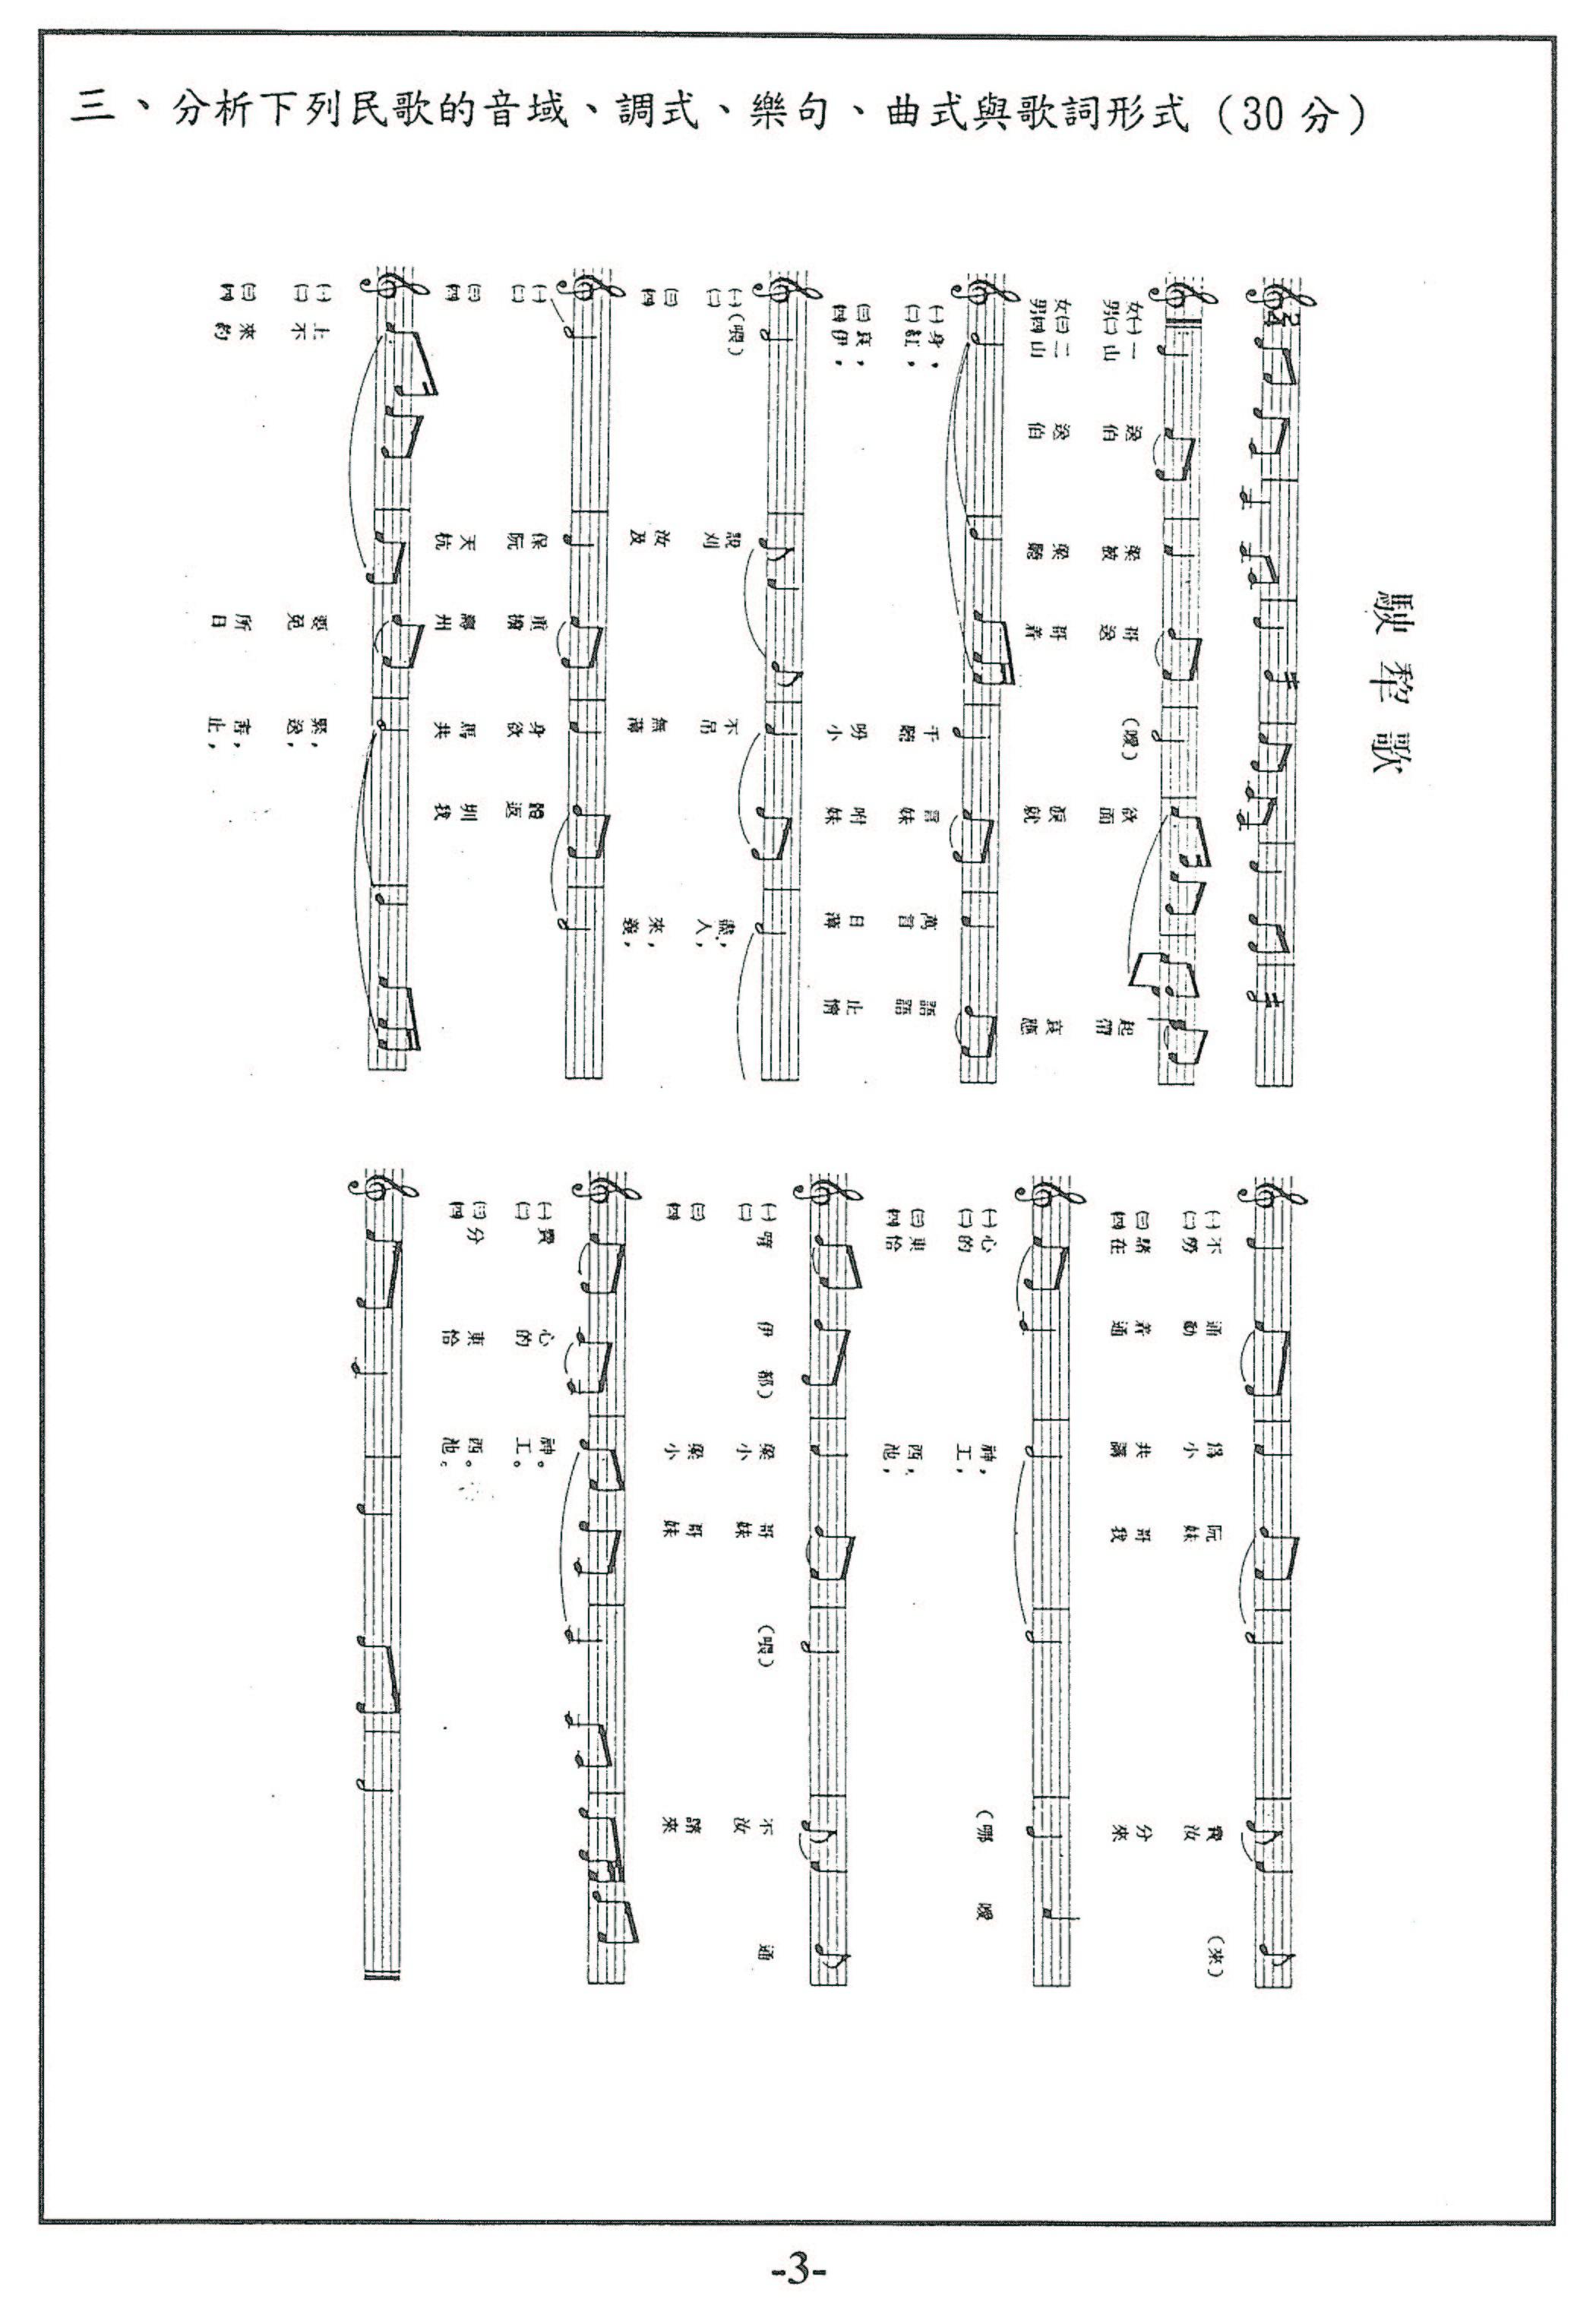 三、分析下列民歌的音域、調式、樂句、曲式與歌詞形式（30分）
駛犂歌
女㈠一 送 梁 哥 (噯) 欲 起
男㈡山 伯 被 送 面 帶
女㈢二 送 梁 哥 哀
男㈣山 伯 聽 着 就 應
㈠身， 千 言 萬 語
㈡紅， 聽 妹 言 語
㈢哀， 吩 咐 日 止
㈣伊， 小 妹 薄 情
㈠(喂) 說 不 盡，
㈡ 刈 吊 人，
㈢ 汝 無 來，
㈣ 及 薄 義，
㈠ 保 重 身 體
㈡ 阮 擔 欲 返
㈢ 天 馬
㈣ 杭 州 共 我
㈠上 要 緊，
㈡不 免 送，
㈢來 所 害，
㈣約 日 止，
㈠不 通 為 阮 費 (來)
㈡勞 動 小 妹 汝
㈢諸 着 共 哥 分
㈣在 通 講 我 來
㈠心 神， (哪 噯
㈡的 工，
㈢東 西，
㈣恰 池，
㈠ 伊 都) 梁 哥 (喂) 不 通
㈡ 小 妹 汝
㈢ 梁 哥 諸
㈣ 小 妹 來
㈠費 心 神。
㈡ 的 工。
㈢分 東 西。
㈣ 恰 池。
-3-